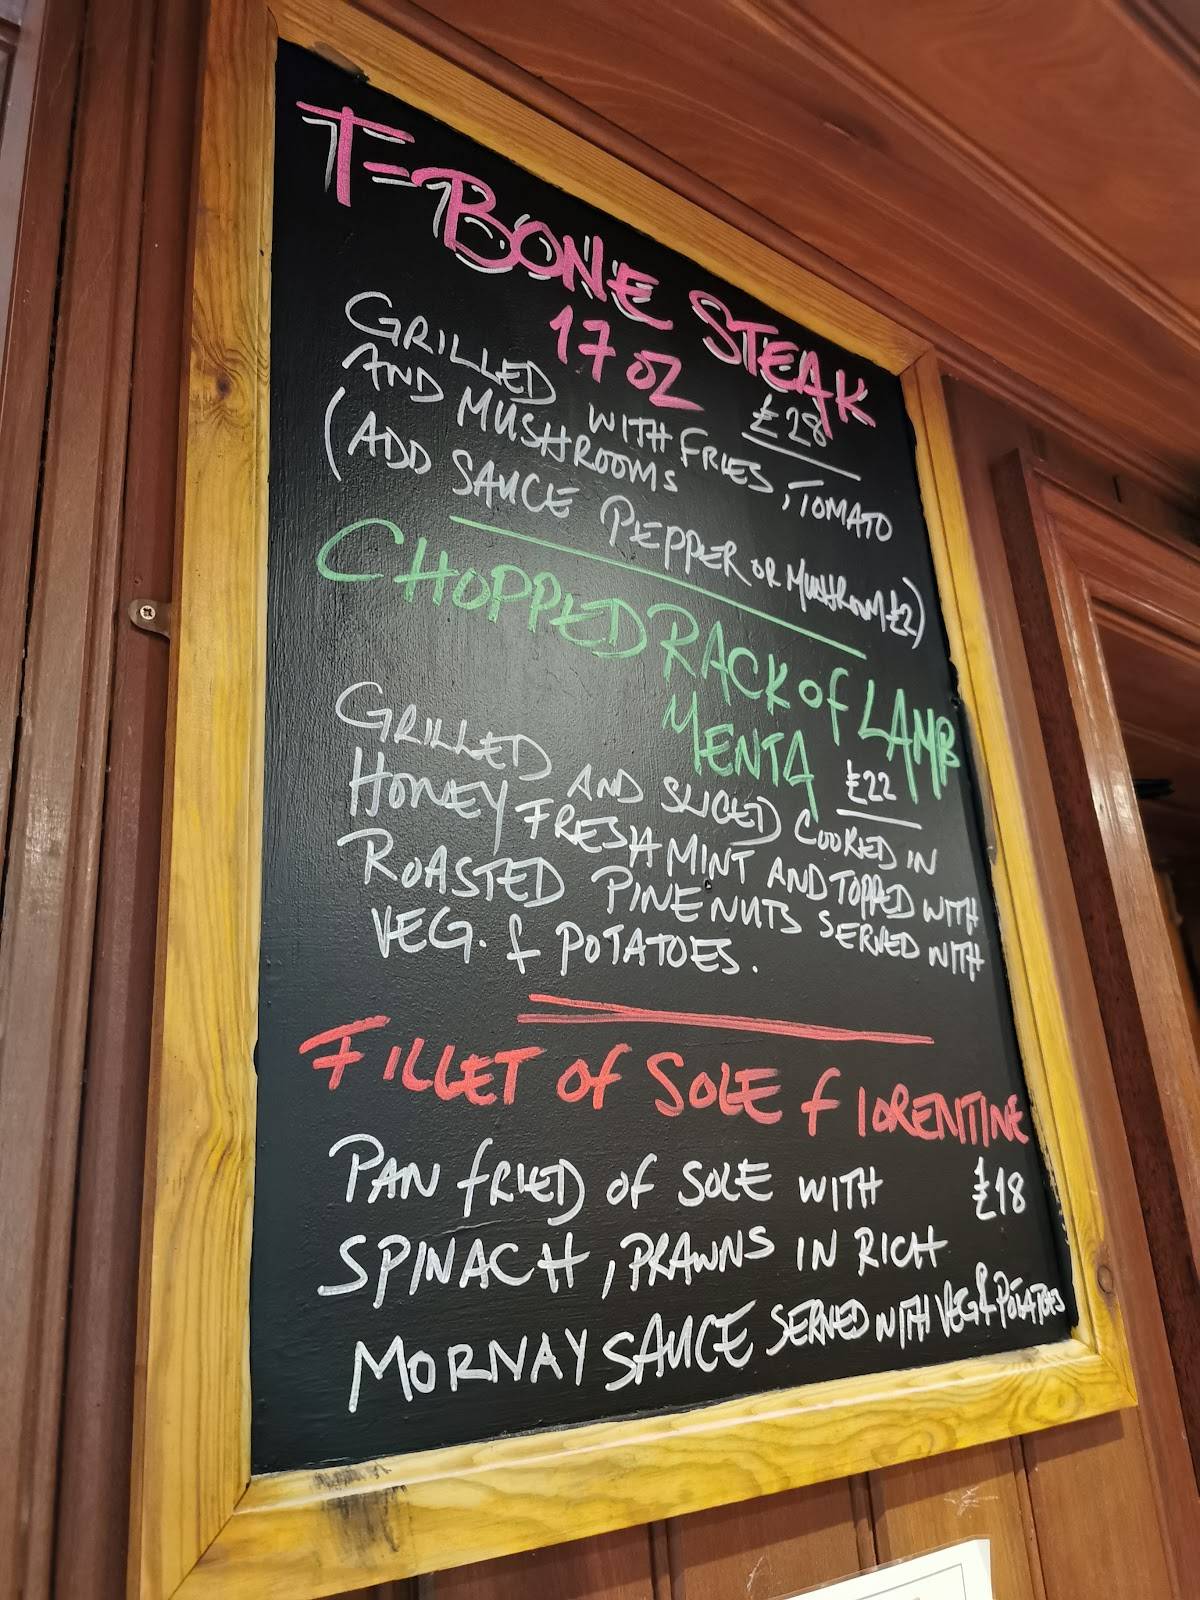 T-BONE STEAK
17 OZ £28
GRILLED WITH FRIES, TOMATO
AND MUSHROOMS
(ADD SAUCE PEPPER OR MUSHROOM £2)
CHOPPED RACK OF LAMB
MENTA £22
GRILLED AND SLICED COOKED IN
HONEY FRESH MINT AND TOPPED WITH
ROASTED PINENUTS SERVED WITH
VEG. & POTATOES.
FILLET OF SOLE FIORENTINE
PAN FRIED OF SOLE WITH £18
SPINACH, PRAWNS IN RICH
MORNAY SAUCE SERVED WITH VEG & POTATOES